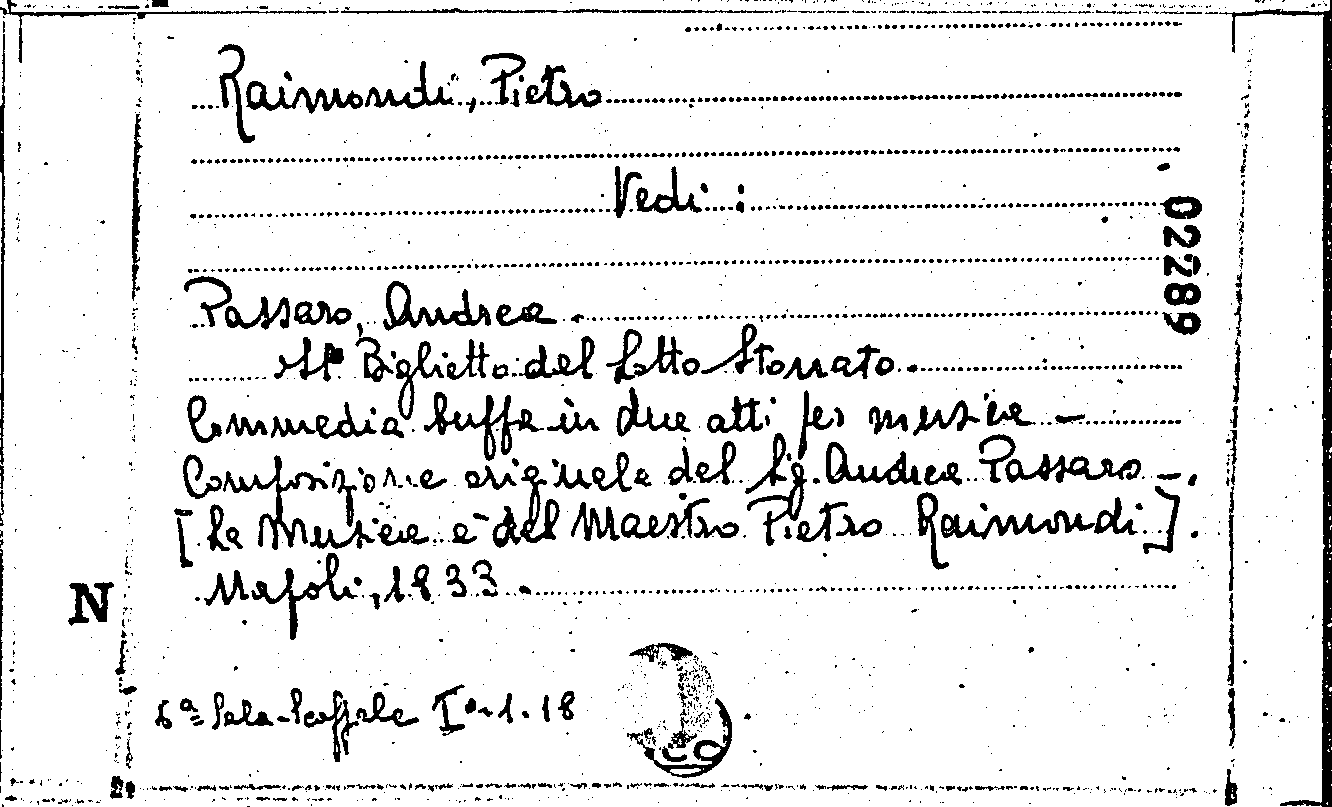 Raimondi, Pietro
Vedi:
02289
Passaro, Andrea.
Il Biglietto del Lotto Stornato.
Commedia buffa in due atti per musica -
Composizione originale del Sig. Andrea Passaro -.
[La Musica è del Maestro Pietro Raimondi].
Napoli, 1833.
N
Sala-Scaffale I°-1.18